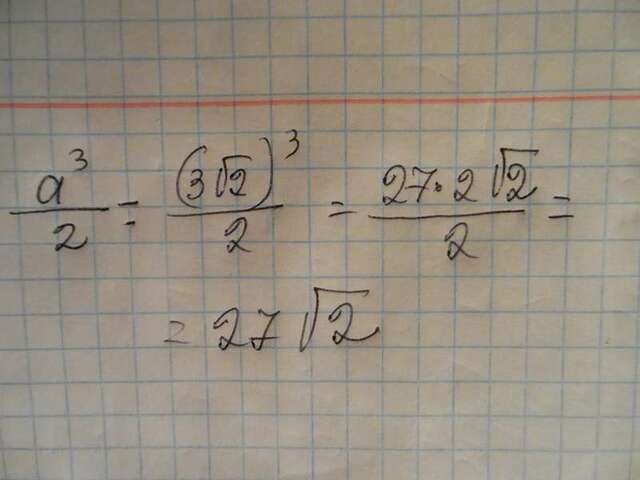 a³/2 = (3√2)³/2 = 27·2√2/2 =
= 27√2